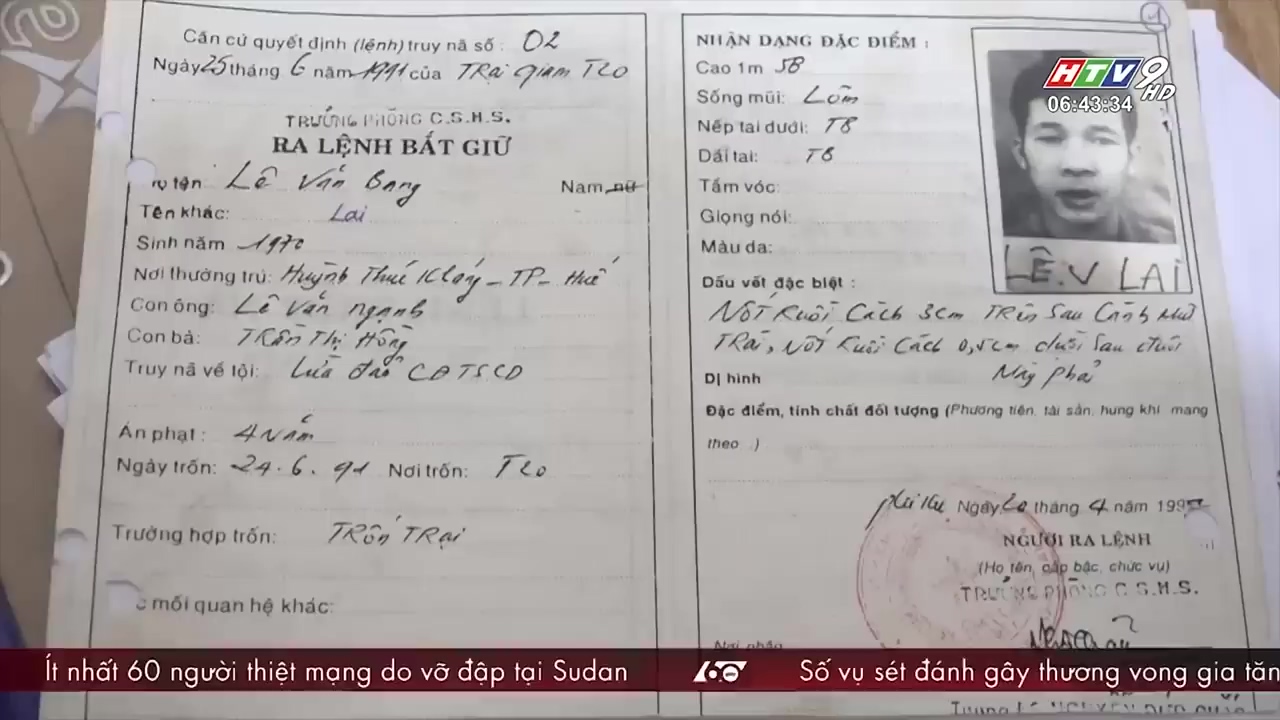 Căn cứ quyết định (lệnh) truy nã số : 02
Ngày 25 tháng 6 năm 1991 của Trại giam T20
TRƯỞNG PHÒNG C.S.H.S.
RA LỆNH BẮT GIỮ
tên: Lê Văn Bang Nam nữ
Tên khác: Lai
Sinh năm 1970
Nơi thường trú: Huỳnh Thúc Kháng - TP - Huế
Con ông: Lê Văn
Con bà: Trần Thị Hồng
Truy nã về tội: Lừa đảo CĐTSCD
Án phạt : 4 Năm
Ngày trốn: 24.6.91 Nơi trốn: T20
Trường hợp trốn: Trốn Trại
mối quan hệ khác:
1
NHẬN DẠNG ĐẶC ĐIỂM :
Cao 1m 58
Sống mũi: Lõm
Nếp tai dưới: TB
Dái tai: TB
Tầm vóc:
Giọng nói:
Màu da:
LÊ.V LAI
Dấu vết đặc biệt :
Nốt Ruồi Cách 3cm Trên Sau Cánh Mũi
Trái, Nốt Ruồi Cách 0,5cm dưới Sau đuôi
Mày phải
Dị hình
Đặc điểm, tính chất đối tượng (Phương tiện, tài sản, hung khí mang
theo .)
Ngày 20 tháng 4 năm 199
NGƯỜI RA LỆNH
(Họ tên, cấp bậc, chức vụ)
TRƯỞNG PHÒNG C.S.H.S.
Nơi nhận
HTV9 HD
06:43:34
Ít nhất 60 người thiệt mạng do vỡ đập tại Sudan
Số vụ sét đánh gây thương vong gia tăn